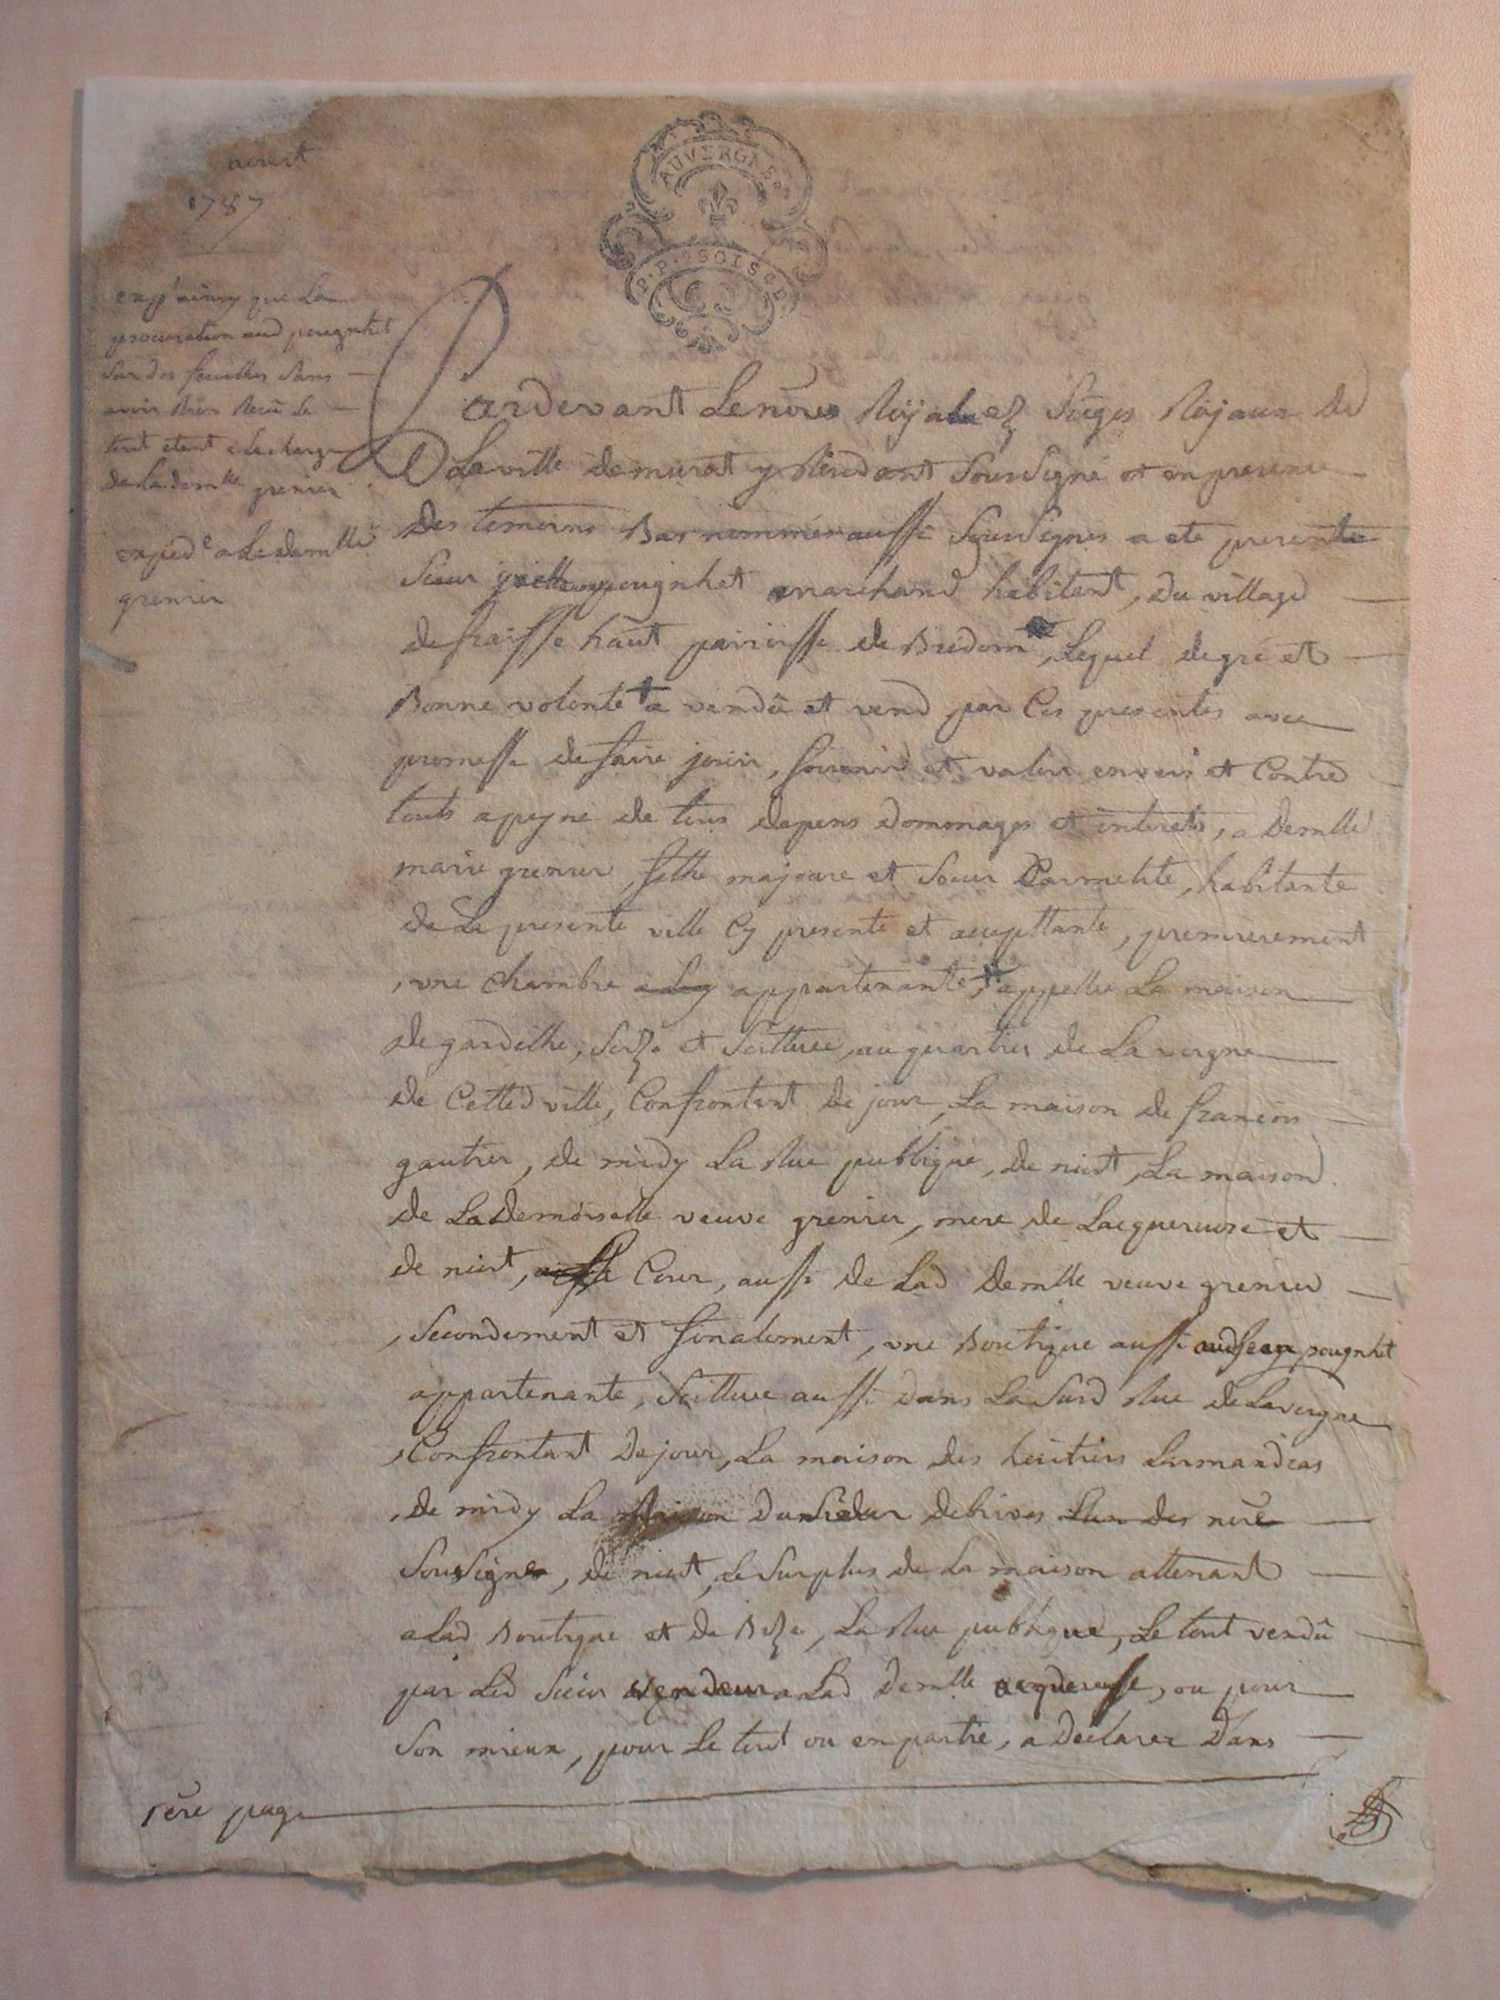 aoust
1787
AUVERGNE
2. P. 2 SOLS 8 D.
exp.é ainsy que La
procuration aud pougnhet
Sur des feuilles Sans
avoir Rien Recu Le
tout etant a la charge
de La demlle grenier
exped.e a La demlle
grenier
Pardevant Le nore Royal ez Sieges Royaux de
La ville de murat y Residant Soussigné et en presence
Des temoins Bas nommés aussi Soussignes a ete presente
Sieur pougnhet marchand habitant, Du village
de fraisse haut parroisse de Bredom, Lequel de gré et
Bonne volonté a vendû et vend par Ces presentes avec
promesse de faire jouir, fournir et valoir envers et Contre
touts a peyne de tous depens dommages et interets, a Demlle
marie grenier, fille majeure et Soeur Carmelite, habitante
de La presente ville Cy presente et acceptante, premierement
, une chambre a Luy appartenante, appellée La maison
de gardelhe, Size et Scittuée au quartier de La vergne
de Cetted ville, Confrontant de jour, La maison de francois
gautier, de midy La Rue publique, de nuit, La maison
de La Demoiselle veuve grenier, mere de Lacquereuse et
de nuit, Cour, aussi de Lad Demlle veuve grenier
, Secondement et finalement, une Boutique aussi aud Sieur pougnhet
appartenante, Scittuée aussi Dans La Susd Rue de Lavergne
, Confrontant De jour, La maison des heritiers Larmandeas
, de midy La maison Du Sieur debrives Lun des nore
Soussigné, de nuit, Le Surplus de La maison attenant
a Lad Boutique et de Bize, La Rue publique, Le tout vendû
par Led Sieur vendeur a Lad Demlle acquereusse, ou pour
Son mieux, pour Le tout ou en partie, a Declarer Dans
79
1ere page